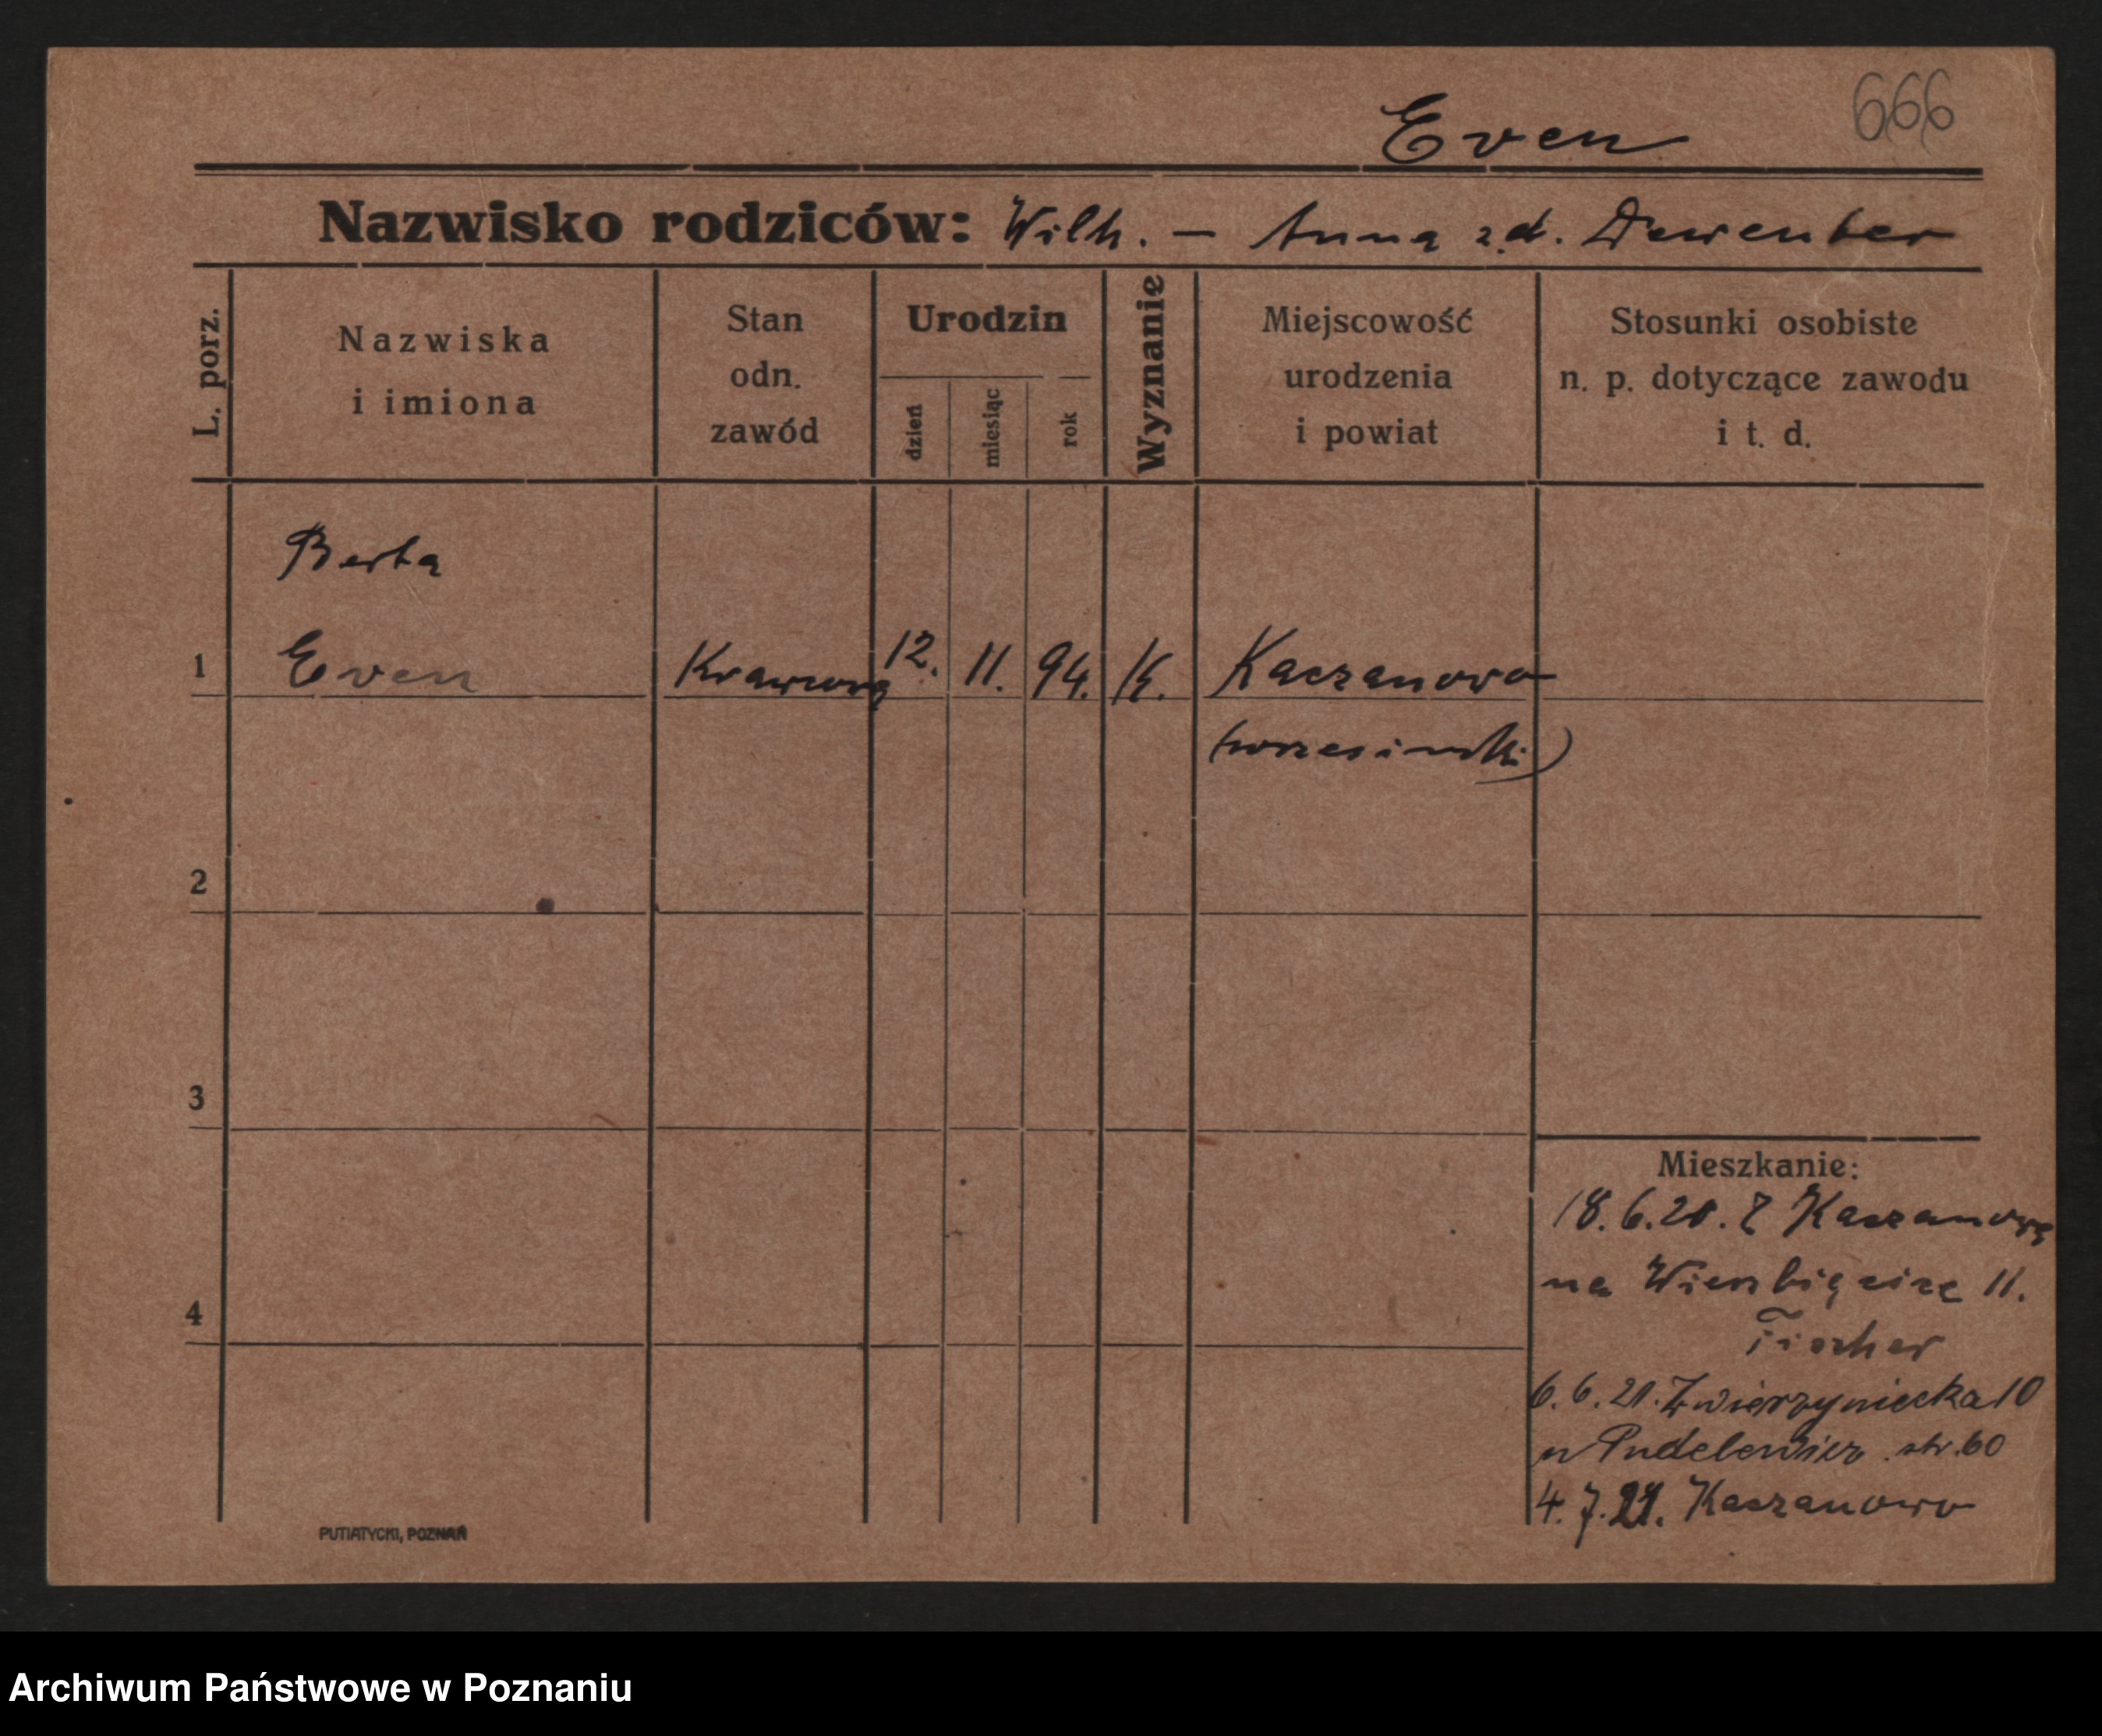 666
Even
Nazwisko rodziców: Wilh. — Anna z.d. Dewenter
L. porz.
Nazwiska
i imiona
Stan
odn.
zawód
Urodzin
dzień
miesiąc
rok
Wyznanie
Miejscowość
urodzenia
i powiat
Stosunki osobiste
n. p. dotyczące zawodu
i t. d.
Berta
1 Even Krawcowa 12. 11. 94. K. Kaczanowo
(wrzesiński)
2
3
4
Mieszkanie:
18.6.20. Z Kaczanowa
na Wierzbięcice 11.
Fischer
6.6.21. Zwierzyniecka 10
u Pudelewicz str. 60
4.7.21. Kaczanowo
PUTIATYCKI, POZNAŃ
Archiwum Państwowe w Poznaniu